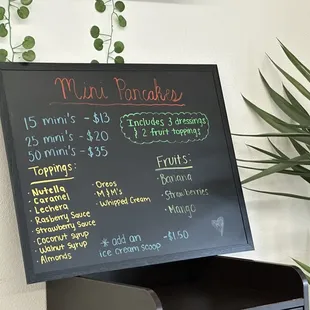 Mini Pancakes
15 mini's - $13
25 mini's - $20
50 mini's - $35
Includes 3 dressings
& 2 fruit toppings
Toppings:
Nutella
Caramel
Lechera
Rasberry Sauce
Strawberry Sauce
Coconut syrup
Walnut syrup
Almonds
Oreos
M&M's
Whipped Cream
Fruits:
Banana
Strawberries
Mango
* add an
ice cream scoop
- $1.50